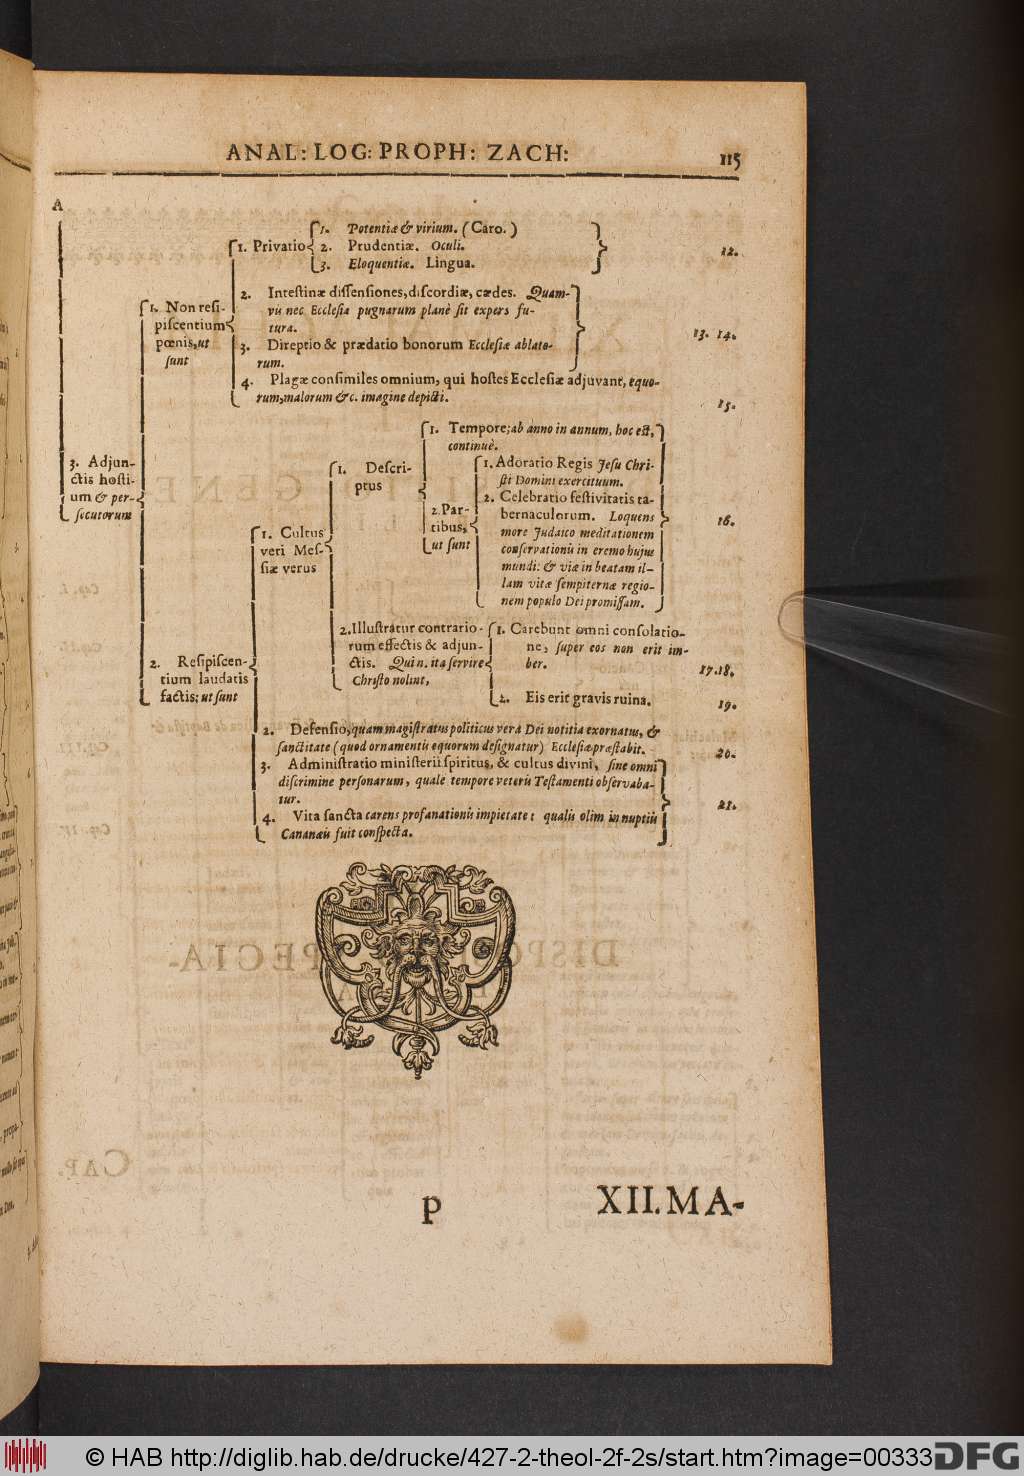 ANAL: LOG: PROPH: ZACH:
115
A
3. Adjun-
ctis hosti-
um & per-
secutorum
1. Non resi-
piscentium
pœnis, ut
sunt
1. Privatio
1. Potentiæ & virium. (Caro.)
2. Prudentiæ. Oculi.
3. Eloquentiæ. Lingua.
12.
2. Intestinæ dissensiones, discordiæ, cædes. Quam-
vis nec Ecclesia pugnarum planè sit expers fu-
tura.
3. Direptio & prædatio bonorum Ecclesiæ ablato-
rum.
13. 14.
4. Plagæ consimiles omnium, qui hostes Ecclesiæ adjuvant, equo-
rum, malorum &c. imagine depicti.
15.
2. Resipiscen-
tium laudatis
factis: ut sunt
1. Cultus
veri Mes-
siæ verus
1. Descri-
ptus
1. Tempore; ab anno in annum, hoc est,
continuè.
2. Par-
tibus,
ut sunt
1. Adoratio Regis Jesu Chri-
sti Domini exercituum.
2. Celebratio festivitatis ta-
bernaculorum. Loquens
more Judaico meditationem
conservationis in eremo hujus
mundi: & viæ in beatam il-
lam vitæ sempiternæ regio-
nem populo Dei promissam.
16.
2. Illustratur contrario-
rum effectis & adjun-
ctis. Qui n. ita servire
Christo nolint,
1. Carebunt omni consolatio-
ne, super eos non erit im-
ber.
17. 18.
2. Eis erit gravis ruina.
19.
2. Defensio, quam magistratus politicus vera Dei notitia exornatus, &
sanctitate (quod ornamentis equorum designatur) Ecclesiæ præstabit.
20.
3. Administratio ministerii spiritus, & cultus divini, sine omni
discrimine personarum, quale tempore veteris Testamenti observaba-
tur.
4. Vita sancta carens profanationis impietate: qualis olim in nuptiis
Cananæis fuit conspecta.
21.
p
XII. MA-
© HAB http://diglib.hab.de/drucke/427-2-theol-2f-2s/start.htm?image=00333
DFG